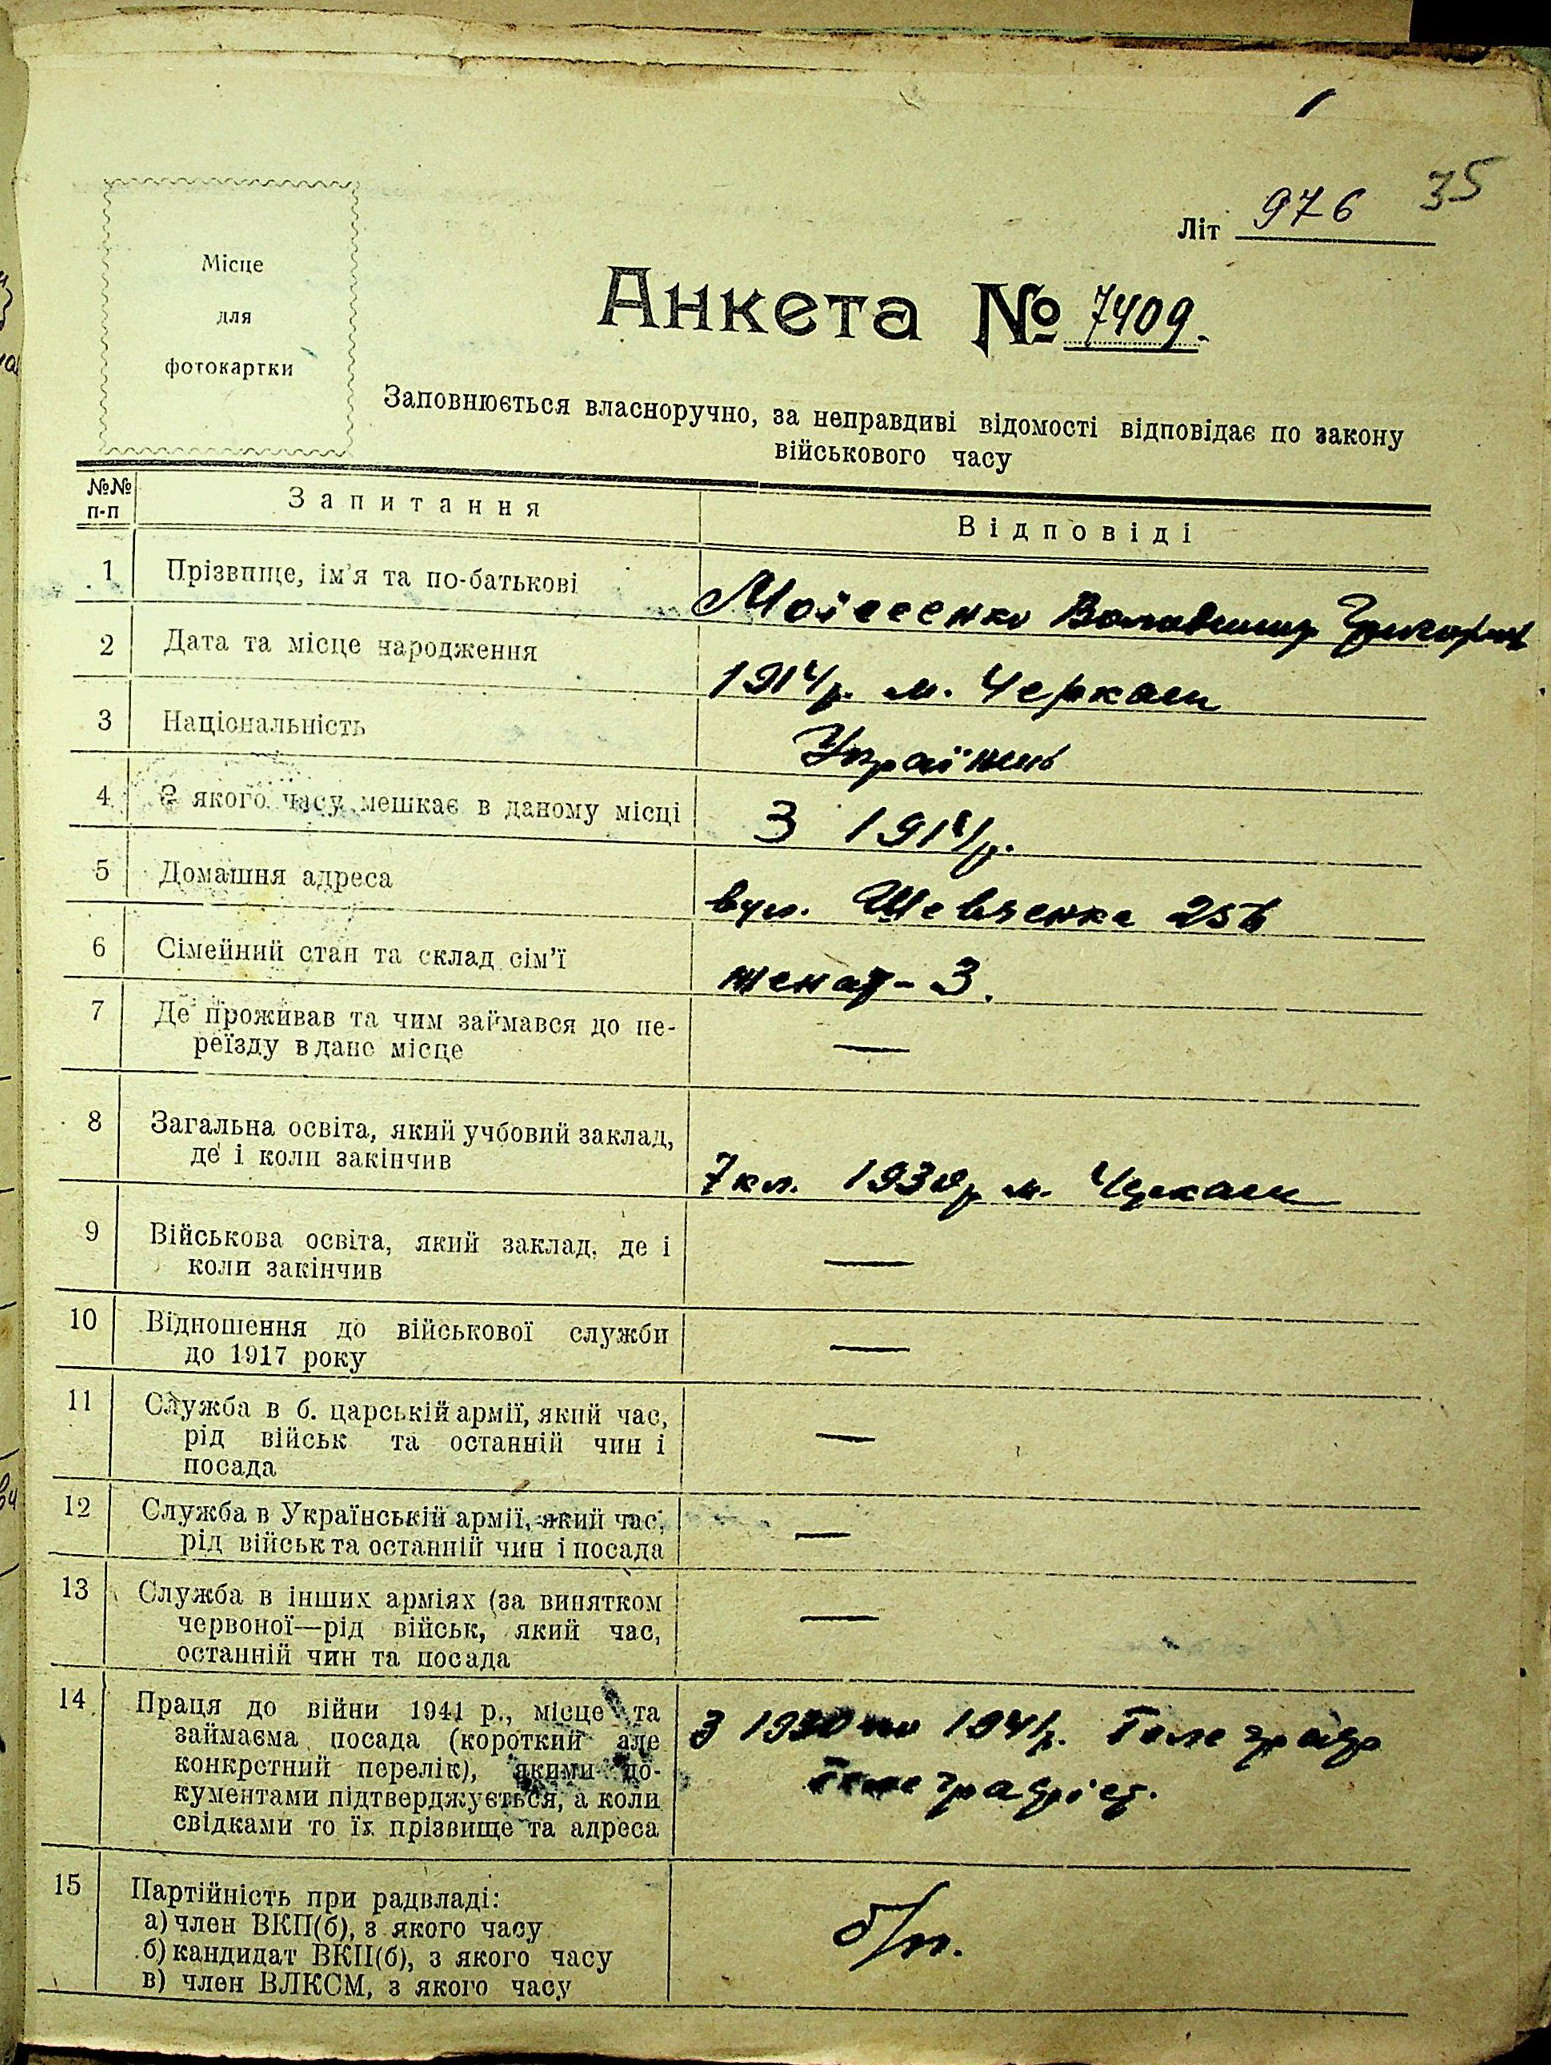 35
Літ 976
Місце
для
фотокартки
Анкета № 7409.
Заповнюється власноручно, за неправдиві відомості відповідає по закону
військового часу
№№ п-п Запитання Відповіді
1 Прізвище, ім'я та по-батькові Моісеенко Володимир Григоров
2 Дата та місце народження 1914р. м. Черкаси
3 Національність Українець
4 З якого часу мешкає в даному місці З 1914р.
5 Домашня адреса вул. Шевченка
6 Сімейний стан та склад сім'ї женат - 3.
7 Де проживав та чим займався до пе-
реїзду в дане місце —
8 Загальна освіта, який учбовий заклад,
де і коли закінчив 7 кл. 1930р м. Черкаси
9 Військова освіта, який заклад, де і
коли закінчив —
10 Відношення до військової служби
до 1917 року —
11 Служба в б. царській армії, який час,
рід військ та останній чин і
посада —
12 Служба в Українській армії, який час,
рід військ та останній чин і посада —
13 Служба в інших арміях (за винятком
червоної—рід військ, який час,
останній чин та посада —
14 Праця до війни 1941 р., місце та
займаєма посада (короткий але
конкретний перелік), якими до-
кументами підтверджується, а коли
свідками то їх прізвище та адреса
З 1930 по 1941р. Телеграф
Телеграфіст.
15 Партійність при радвладі:
а) член ВКП(б), з якого часу
б) кандидат ВКП(б), з якого часу
в) член ВЛКСМ, з якого часу
б/п.